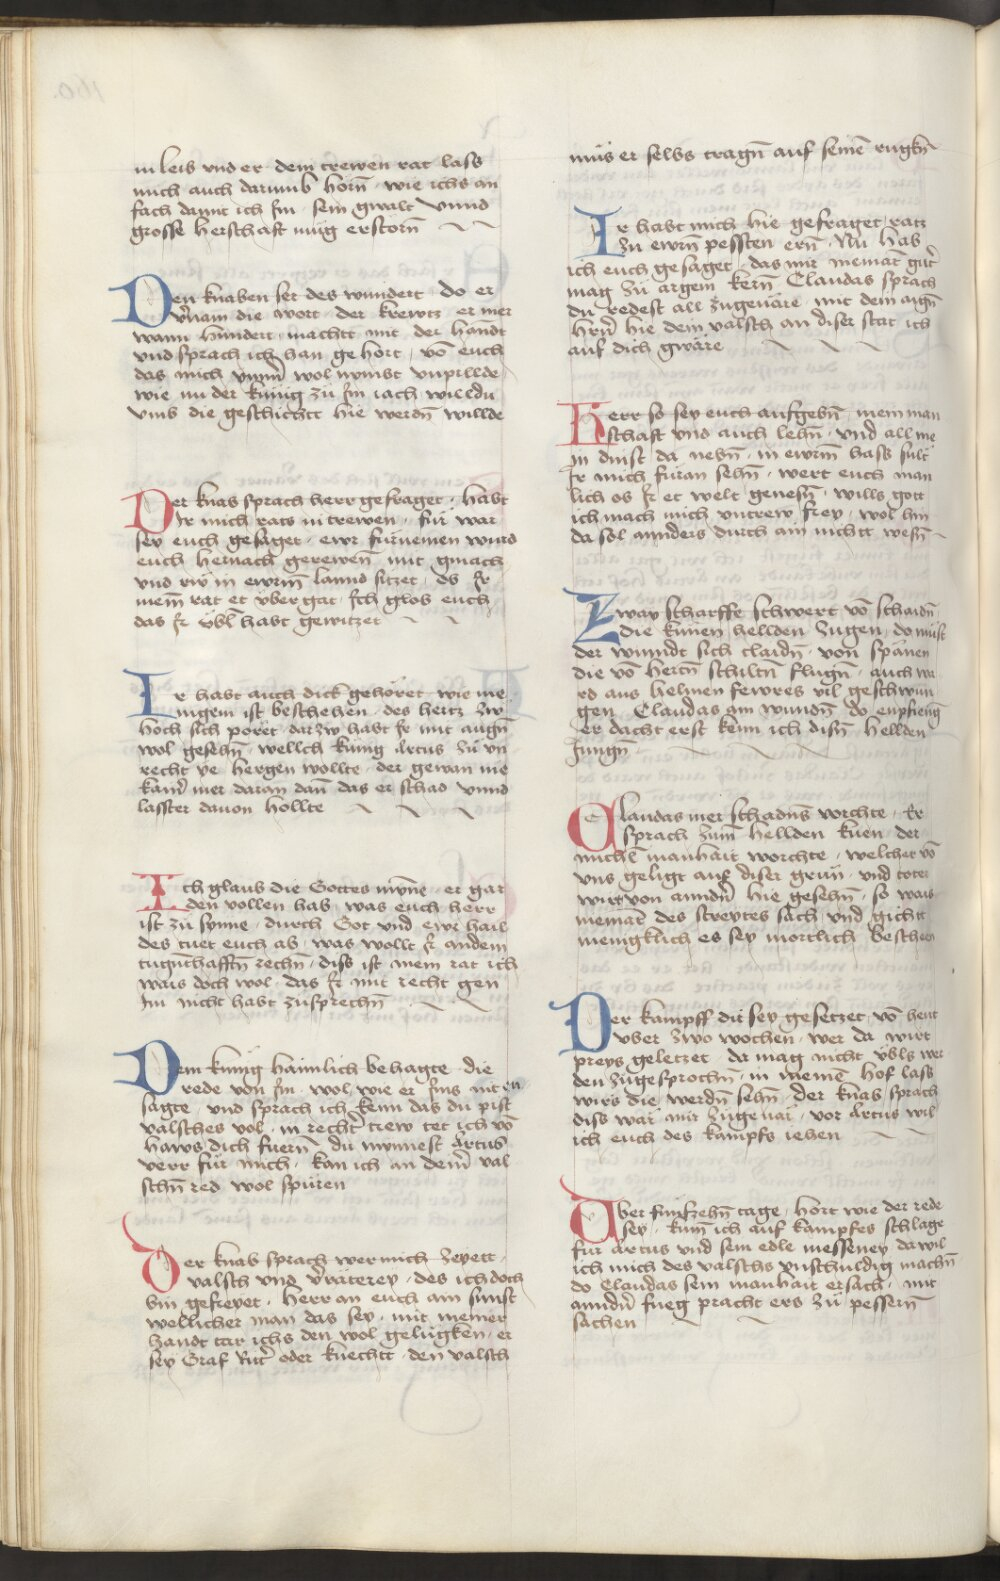 in leib vnd er dem trewen rat lass
mich auch darumb horñ wie ichs an
fach damit ich Im sein gwalt vnnd
grosse herschaft mug erstorñ
Den knaben ser des wundert do er
v̾nam die wort der krewtz er mer
wann hundert machtt mit der handt
vnd sprach ich han gehort võ euch
das mich wol nymbt vnpillde
wie nu der künig zu Im iach willdu
vnns die geschichtt hie werdñ willde
Der knab sprach herr gefraget habt
Ir mich rats in trewen für war
sey euch gesaget ewr fürnemen wurd
euch hernach gerewenñ mit gmach
vnd rw in ewrm lannd sitzet ob Ir
meiñ rat et übergat Ich glob euch
das Ir vbl habt gewitzet
Ir habt auch dick gehöret wie me
nigem ist beschehen des hertz zw
hoch sich poret darzw habt Ir mit augñ
wol gesehñ wellch künig Artus zu vn
recht ye hergen wollte der gewan nie
kainr mer daran dañ das er schad vnnd
lasster dauon hollte
Ich glaub die Gottes mynne er gar
den vollen hab was euch herr
ist zu synne durch Got vnd ewr hail
des tuet euch ab was wollt Ir andem
tugnthafftñ rechñ diss ist mein rat ich
wais doch wol das Ir mit recht gen
Im nicht habt zusprechñ
Dem künig haimlich behagte die
rede von Im wol wie er Ims nit en
sagte vnd sprach ich kenn das du pist
valsches vol in rechtr trew tet ich võ
haws dich fuerñ du nymest Artus
verr für mich kan ich an deinr val
schñ red wol spüren
Der knab sprach wer mich zeyett
valsch vnd v̾räterey des ich doch
bin gefreyet herr an euch ain sunst
wellicher man das sey mit meiner
handt tar ichs den wol gelugken er
sey Graf Rittr oder knechtt den valsch
mus er selbs tragñ auf seinẽ rugkñ
Ir habt mich hie gefraget ratz
zu ewrñ pessten erñ Nu hab
ich euch gesaget das mir nieman̄t gutr
mag zu argem kerñ Claudas sprach
du redest all zugeuäre mit dein aigñ
hrñ hie dem valsch an diser stat ich
auf dich gwäre
Herr so sey euch aufgebñ mein man
schaft vnd auch lehñ vnd all me
in dinst da nebñ in ewrm hass sult
Ir mich füran sehñ wert euch man
lich ob Ir et welt genesñ wills gott
ich mach mich vntrew frey wol hin
da sol annders durch ain nichtt wesñ
Zway scharffe schwert võ schaidñ
die künen hellden zugen do müst
der wunndt sich claidñ von spänen
die võ hertñ schiltñ flugñ auch wa
rd aus helmen fewres vil geschwun
gen Claudas ain wundñ do enpfieng
er dacht erst kenn ich disñ hellden
Iungñ
Claudas mer schadñs vorchte Er
sprach zum hellden küen der
michel manhait worchte welcher võ
vns geligt auf diser grün vnd toter
wirt von anndrñ hie gesehñ so wais
niemãt des streytes sach vnd gichtt
menigklich es sey mortlich bescheen
Der kampff dir sey gesetzet võ heut
vber zwo wochen wer da wirt
preys geletzet da mag nicht übls wer
den zugesprochñ in meinẽ hof lass
wirs die werdñ sehñ der knab sprach
diss wär mir zugenäi vor Artus wil
ich euch des kampfs iehen
Über fünfzehñ tage hort wie der rede
sey kum ich auf kampfes schlage
für Artus vnd sein edle messeney da wil
ich mich des valschs vnschuldig machñ
do Claudas sein manhait ersach mit
anndrñ fueg pracht ers zu pessern
sachen